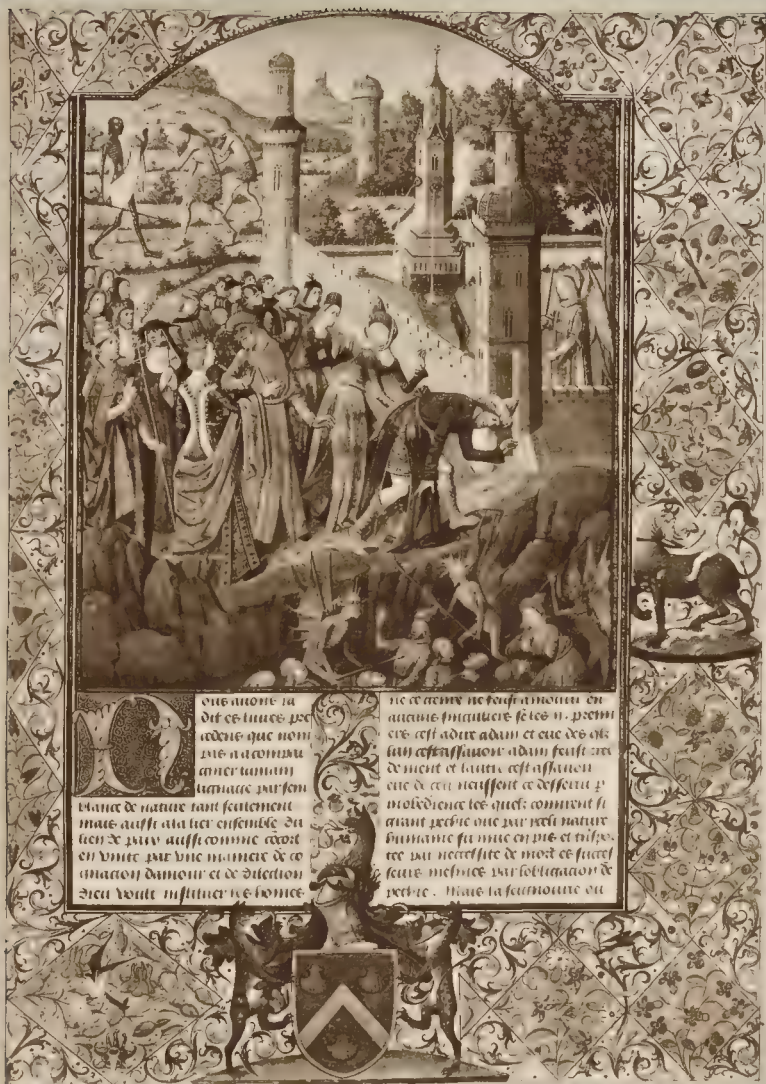 Nous auons ia
dit es liures pre
cedens que nom
pas a acompai
gnier lumain
lignaige par sem
blance de nature tant seulement
mais aussi a la lier ensemble du
lien de paix aussi comme cōcord
en vnite par vne maniere de co
gnacion damour et de dilection
dieu voult instituer les homes
ne ce genre ne feust a mourir en
aucuns singuliers se les .ii. premi
ers cest adire adam et eue des qlz
lun cestassauoir adam feust
de nient et lautre cest assauoir
eue de neussent ce desserui p
inobedience les quelz comirent si
grant pechie que par nature
humaine fu muee en pis et
tee par necessite de mort es succes
seurs mesmes par lobligacion de
pechie . Mais la seignourie ou